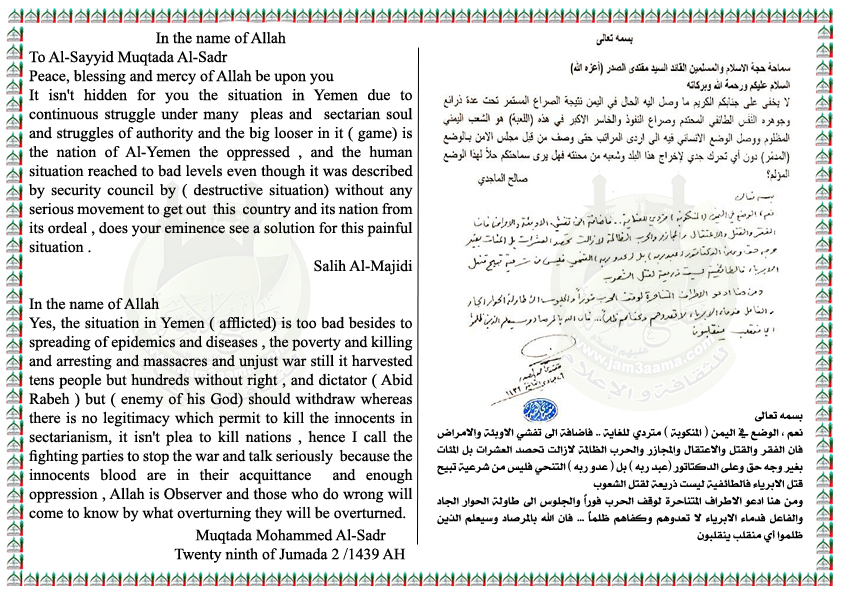 In the name of Allah
To Al-Sayyid Muqtada Al-Sadr
Peace, blessing and mercy of Allah be upon you
It isn't hidden for you the situation in Yemen due to
continuous struggle under many pleas and sectarian soul
and struggles of authority and the big looser in it ( game) is
the nation of Al-Yemen the oppressed , and the human
situation reached to bad levels even though it was described
by security council by ( destructive situation) without any
serious movement to get out this country and its nation from
its ordeal , does your eminence see a solution for this painful
situation .
Salih Al-Majidi
In the name of Allah
Yes, the situation in Yemen ( afflicted) is too bad besides to
spreading of epidemics and diseases , the poverty and killing
and arresting and massacres and unjust war still it harvested
tens people but hundreds without right , and dictator ( Abid
Rabeh ) but ( enemy of his God) should withdraw whereas
there is no legitimacy which permit to kill the innocents in
sectarianism, it isn't plea to kill nations , hence I call the
fighting parties to stop the war and talk seriously because the
innocents blood are in their acquittance and enough
oppression , Allah is Observer and those who do wrong will
come to know by what overturning they will be overturned.
Muqtada Mohammed Al-Sadr
Twenty ninth of Jumada 2 /1439 AH
بسمه تعالى
سماحة حجة الاسلام والمسلمين القائد السيد مقتدى الصدر (أعزه الله)
السلام عليكم ورحمة الله وبركاته
لا يخفى على جنابكم الكريم ما وصل اليه الحال في اليمن نتيجة الصراع المستمر تحت عدة ذرائع
وجوهره النَفَس الطائفي المحتدم وصراع النفوذ والخاسر الاكبر في هذه (اللعبة) هو الشعب اليمني
المظلوم ووصل الوضع الانساني فيه الى اردى المراتب حتى وصف من قبل مجلس الامن بـالوضع
(المدمّر) دون أي تحرك جدي لإخراج هذا البلد وشعبه من محنته فهل يرى سماحتكم حلاً لهذا الوضع
المؤلم؟
صالح الماجدي
بسمه تعالى
نعم الوضع في اليمن (المنكوبة) متردي للغاية .. فاضافة الى تفشي الاوبئة والامراض فان
الفقر والقتل والاعتقال والمجازر والحرب الظالمة لازالت تحصد العشرات بل المئات بغير
وجه حق وعلى الدكتاتور (عبد ربه) بل (عدو ربه) التنحي فليس من شرعية تبيح قتل
الابرياء فالطائفية ليست ذريعة لقتل الشعوب
ومن هنا ادعو الاطراف المتناحرة لوقف الحرب فوراً والجلوس الى طاولة الحوار الجاد
والفاعل فدماء الابرياء لا تعدوهم وكفاهم ظلماً ... فان الله بالمرصاد وسيعلم الذين ظلموا
أي منقلب ينقلبون
www.jam3aama.com
للثقافة والإعلام
بسمه تعالى
نعم ، الوضع في اليمن ( المنكوبة ) متردي للغاية .. فاضافة الى تفشي الاوبئة والامراض
فان الفقر والقتل والاعتقال والمجازر والحرب الظالمة لازالت تحصد العشرات بل المئات
بغير وجه حق وعلى الدكتاتور (عبد ربه ) بل ( عدو ربه ) التنحي فليس من شرعية تبيح
قتل الابرياء فالطائفية ليست ذريعة لقتل الشعوب
ومن هنا ادعو الاطراف المتناحرة لوقف الحرب فوراً والجلوس الى طاولة الحوار الجاد
والفاعل فدماء الابرياء لا تعدوهم وكفاهم ظلماً ... فان الله بالمرصاد وسيعلم الذين
ظلموا أي منقلب ينقلبون